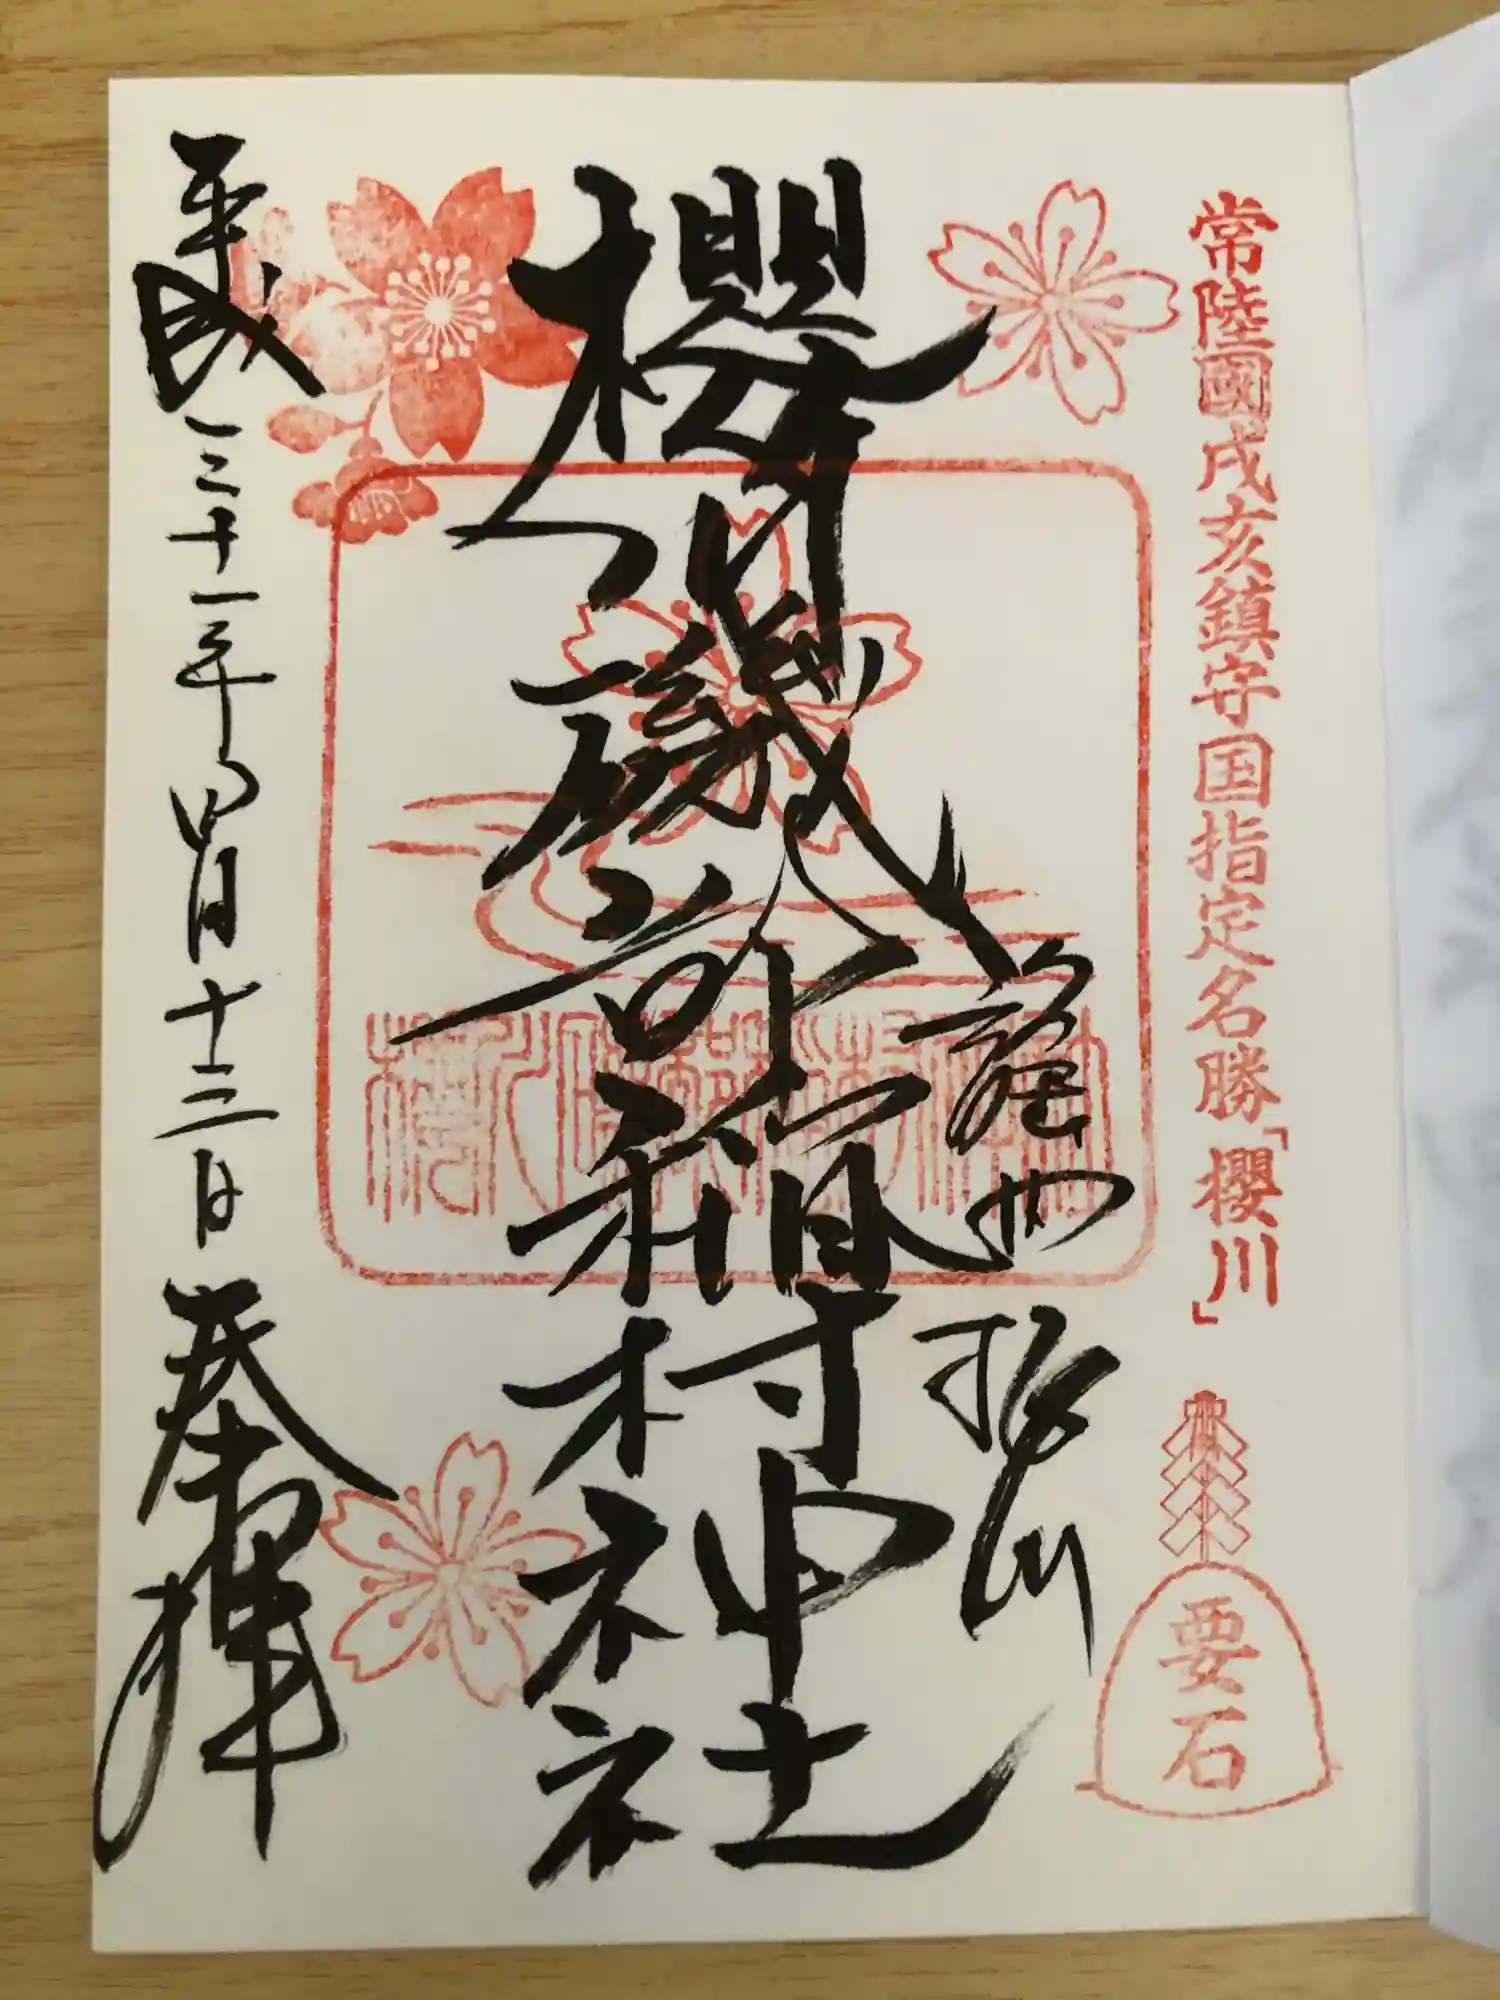 常陸國戌亥鎮守国指定名勝「櫻川」
要石
謡曲
桜川
櫻川磯部稲村神社
平成三十一年四月十三日
奉拝